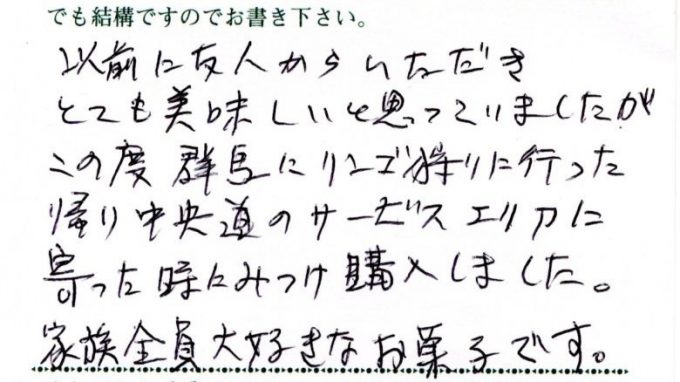 でも結構ですのでお書き下さい。
以前に友人からいただき
とても美味しいと思っていましたが
この度群馬にリンゴ狩りに行った
帰り中央道のサービスエリアに
寄った時にみつけ購入しました。
家族全員大好きなお菓子です。